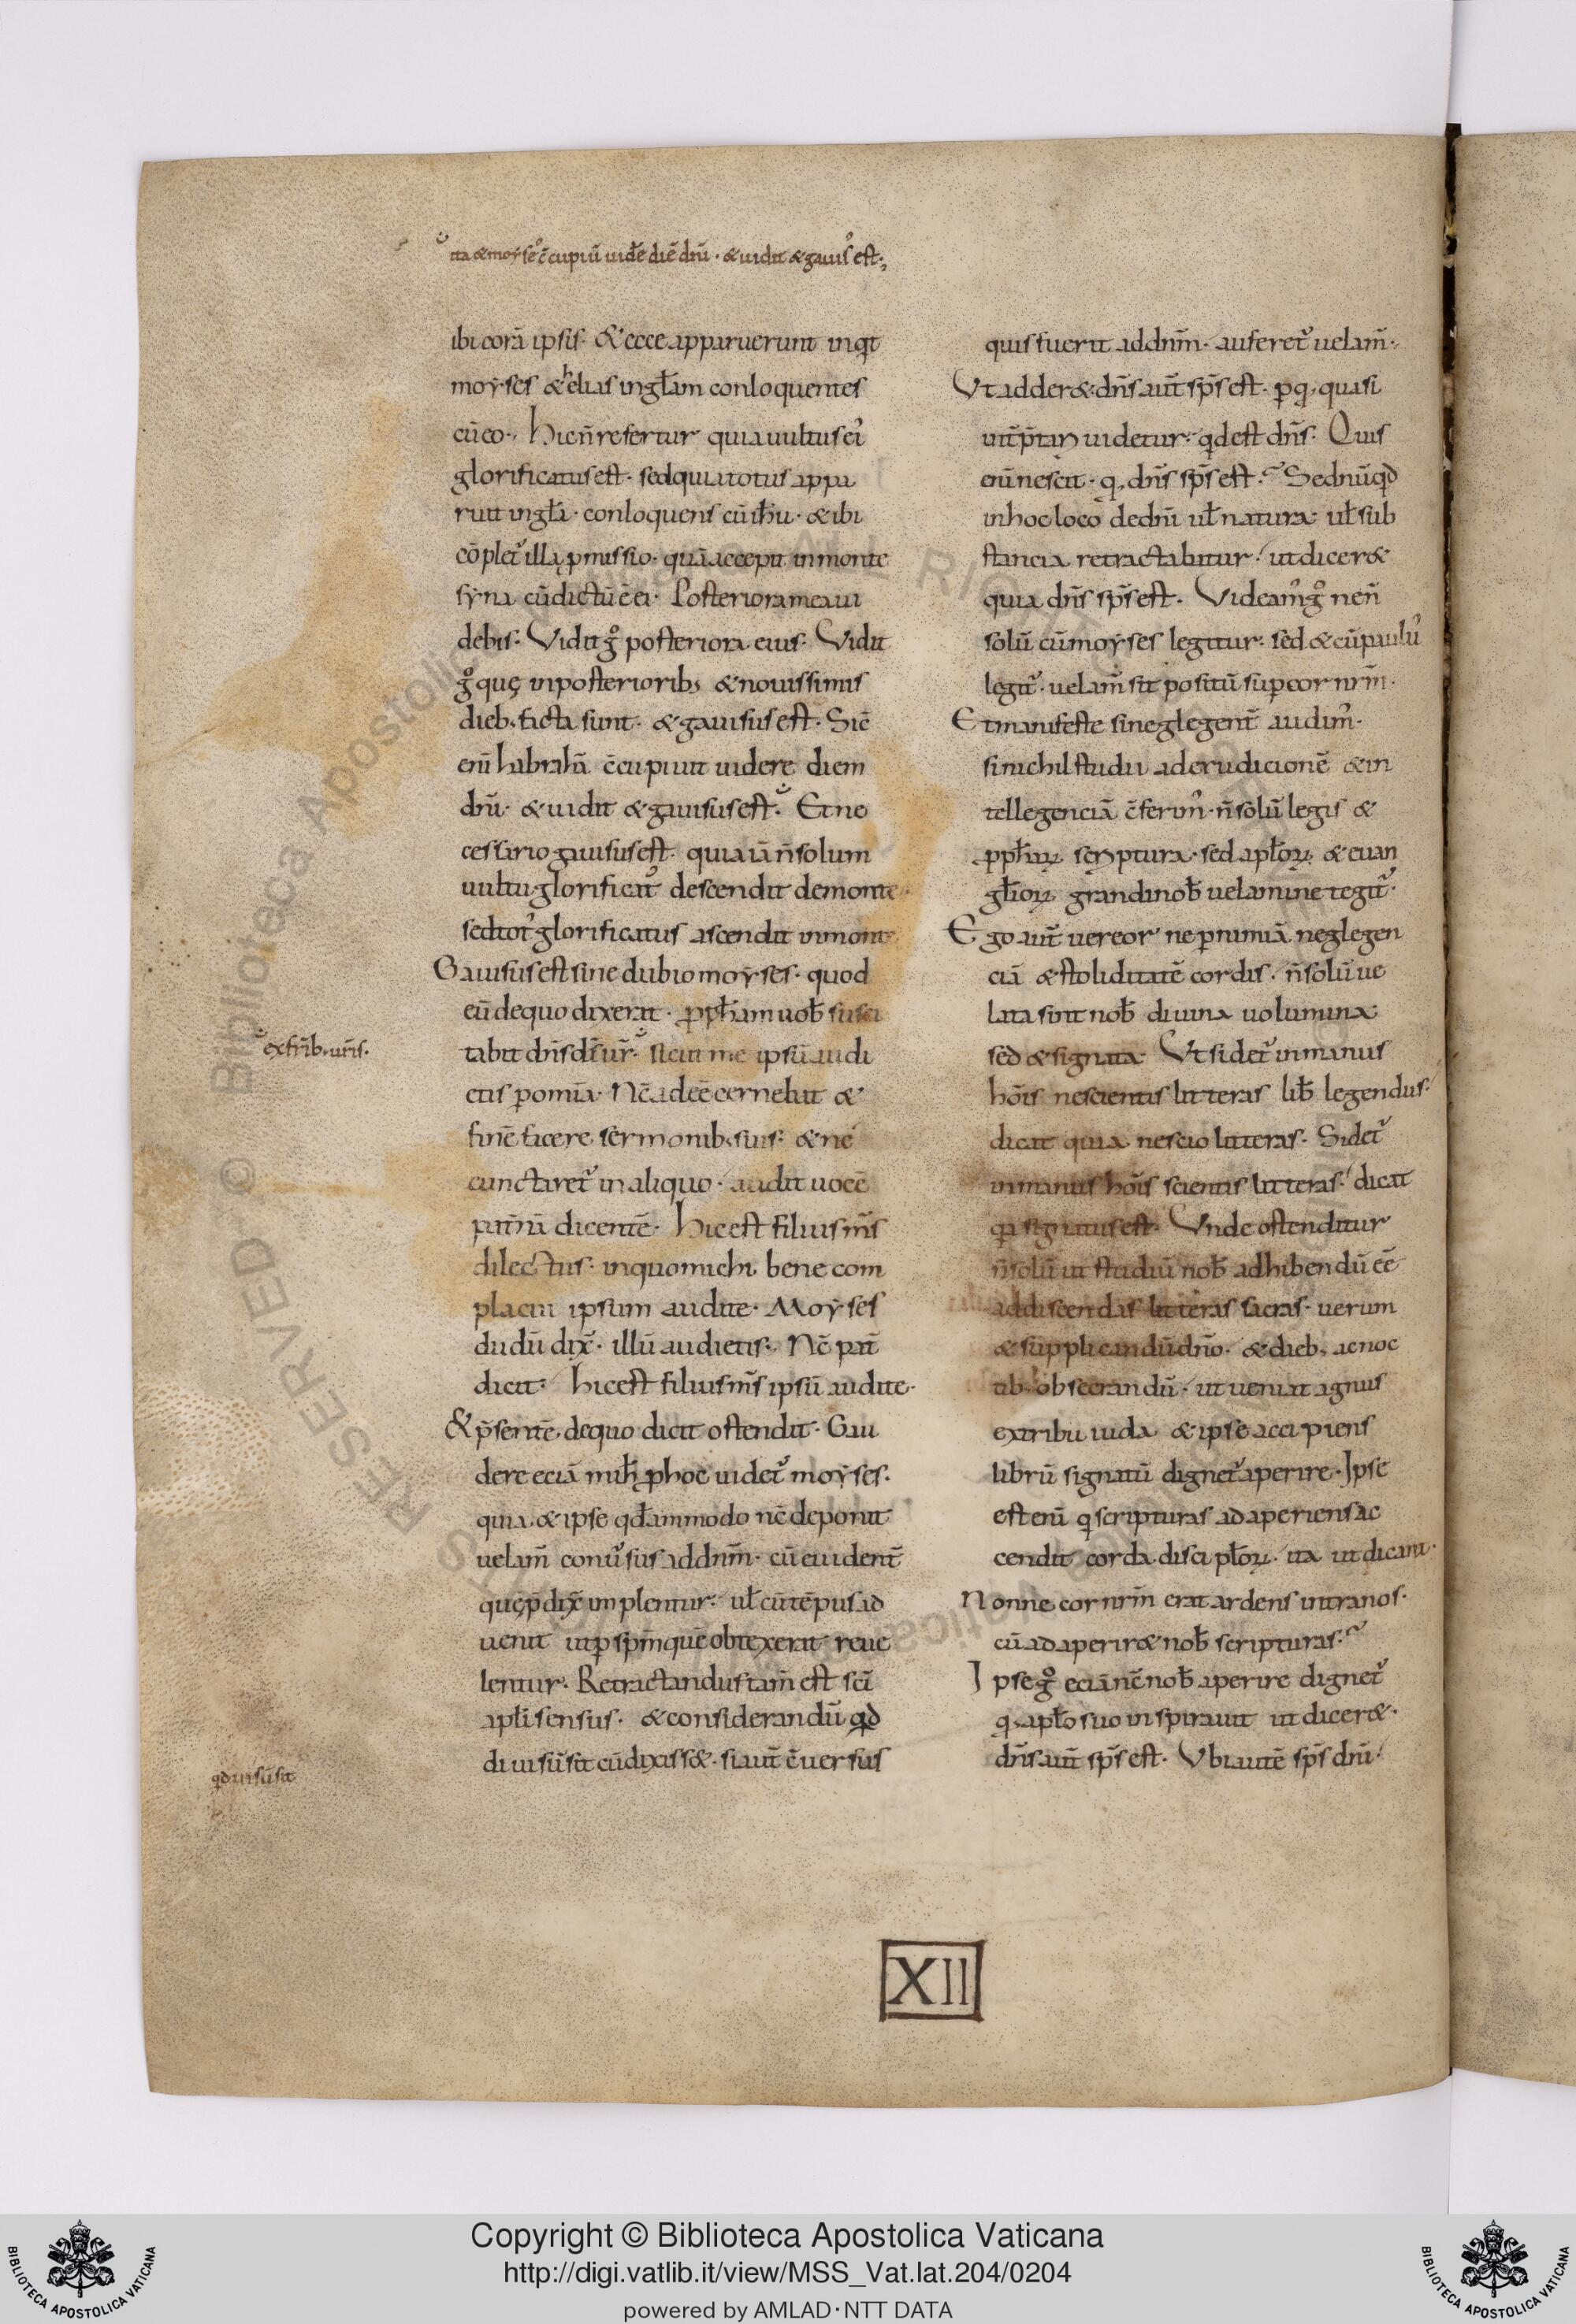 ita & moyses c̄cupiū uidē diē dn̄i · & uidit & gauis̉ est·,
ibi corā ipsis· & ecce apparuerunt inqt
moyses & helias in gl̄am conloquentes
cū eo·, hic n̄ refertur quia uultus eỉ
glorificatus est· sed quia totus appa
ruit in gl̄a· conloquens cū ih̄u· & ibi
cōplet̉ illa ꝓmissio· quā accepit in monte
syna cū dictū ē ei· Posteriora mea ui
debis· Vidit gͦ posteriora eius· Vidit
gͦ quę in posteriorib; & nouissimis
dieb; facta sunt· & gauisus est· Sic̄
eni̅ habrahā c̄cupiuit uidere diem
dn̄i· & uidit & gauisus est· Et ne
cessario gauisus est· quia iā n̄ solum
uultu glorificat̉ descendit de monte·
sed tot̉ glorificatus ascendit in monte
Gauisus est sine dubio moyses· quod
eū de quo dixerat· ꝓph̄am uob̄ susci
ex fr̄ib; ur̄is·
tabit dn̄s d̄s ur̄· sicut me ipsū audi
etis ꝑ omīa· Nc̄ adee cernebat &
finē facere sermonib; suis· & ne
cunctaret̉ in aliquo· audit uocē
patnā dicentē· hic est filius m̄s
dilectus· in quo michi bene com
placui ipsum audite· Moyses
dudū dix̄· illū audietis·, Nc̄ pat̄
dicit· hic est filius m̄s ipsū audite·
& p̄sentē de quo dicit ostendit· Gau
dere eciā mih̄ ꝓ hoc uidet̉ moyses·
quia & ipse qd̄ammodo nc̄ deponit
uelam̄ conu̓sus ad dnm̄· cū euident̄
quę p̄dix̄ implentur· ul̄ cū tēpus ad
uenit ut ꝑ spm̄ quē obtexerat reue
lentur· Retractandus tam̄ est sc̄i
apl̄i sensus· & considerandū qd
qd uisū sit
di uisū sit cū dixiss&· si aut̄ c̄uersus
quis fuerit ad dnm̄· auferet̉ uelam̄·,
Vt adder& dn̄s aut̄ sp̄s est· ꝑ q; quasi
int̄p̄tari uidetur· qd est dn̄s· Quis
enī nescit· q; dn̄s sp̄s est· Sed nūqd
in hoc loco de dn̄i ul̄ natura ul̄ sub
stancia retractabitur· ut dicer&
quia dn̄s sp̄s est· Videam̉ gͦ ne n̄
solū cū moyses legitur· sed & cū paulu̓
legit̉· uelam̄ sit positū sup cor nrm̄·
Et manifeste si neglegent̄ audim̉·
si nichil studii ad erudicionē & in
tellegenciā c̄ferim̉· n̄ solū legis &
ꝓph̄aꝝ scriptura· sed apl̄oꝝ & euan
gl̄ioꝝ grandi nob̄ uelamine tegit̉·
Ego aut̄ uereor ne ꝑ nimiā neglegen
ciā & stoliditatē cordis· n̄ solū ue
lata sint nob̄ diuina uolumina
sed & signata· Vt si det̉ in manus
hōis nescientis litteras lib̄ legendus·
dicat quia nescio litteras· Si det̉
in manus hōis scientis litteras· dicat
qa signatus est· Vnde ostenditur
n̄ solū ut studiū nob̄ adhibendū ee̅
addiscendas litteras sacras· uerum
& supplicandū dn̄o· & dieb; ac noc
tib; obsecrandū· ut ueniat agnus
ex tribu iuda & ipse accipiens
librū signatū dignet̉ aperire· Ipse
est enī q scripturas adaperiens ac
cendit corda discipl̄oꝝ· ita ut dicant·
Nonne cor nrm̄ erat ardens intra nos·
cū adaperir& nob̄ scripturas·
Ipse gͦ eciā nc̄ nob̄ aperire dignet̉
q; apl̄o suo inspirauit ut dicer&·
dn̄s aut̄ sp̄s est· Vbi autē sp̄s dn̄i·
XII
Copyright © Biblioteca Apostolica Vaticana
http://digi.vatlib.it/view/MSS_Vat.lat.204/0204
powered by AMLAD·NTT DATA